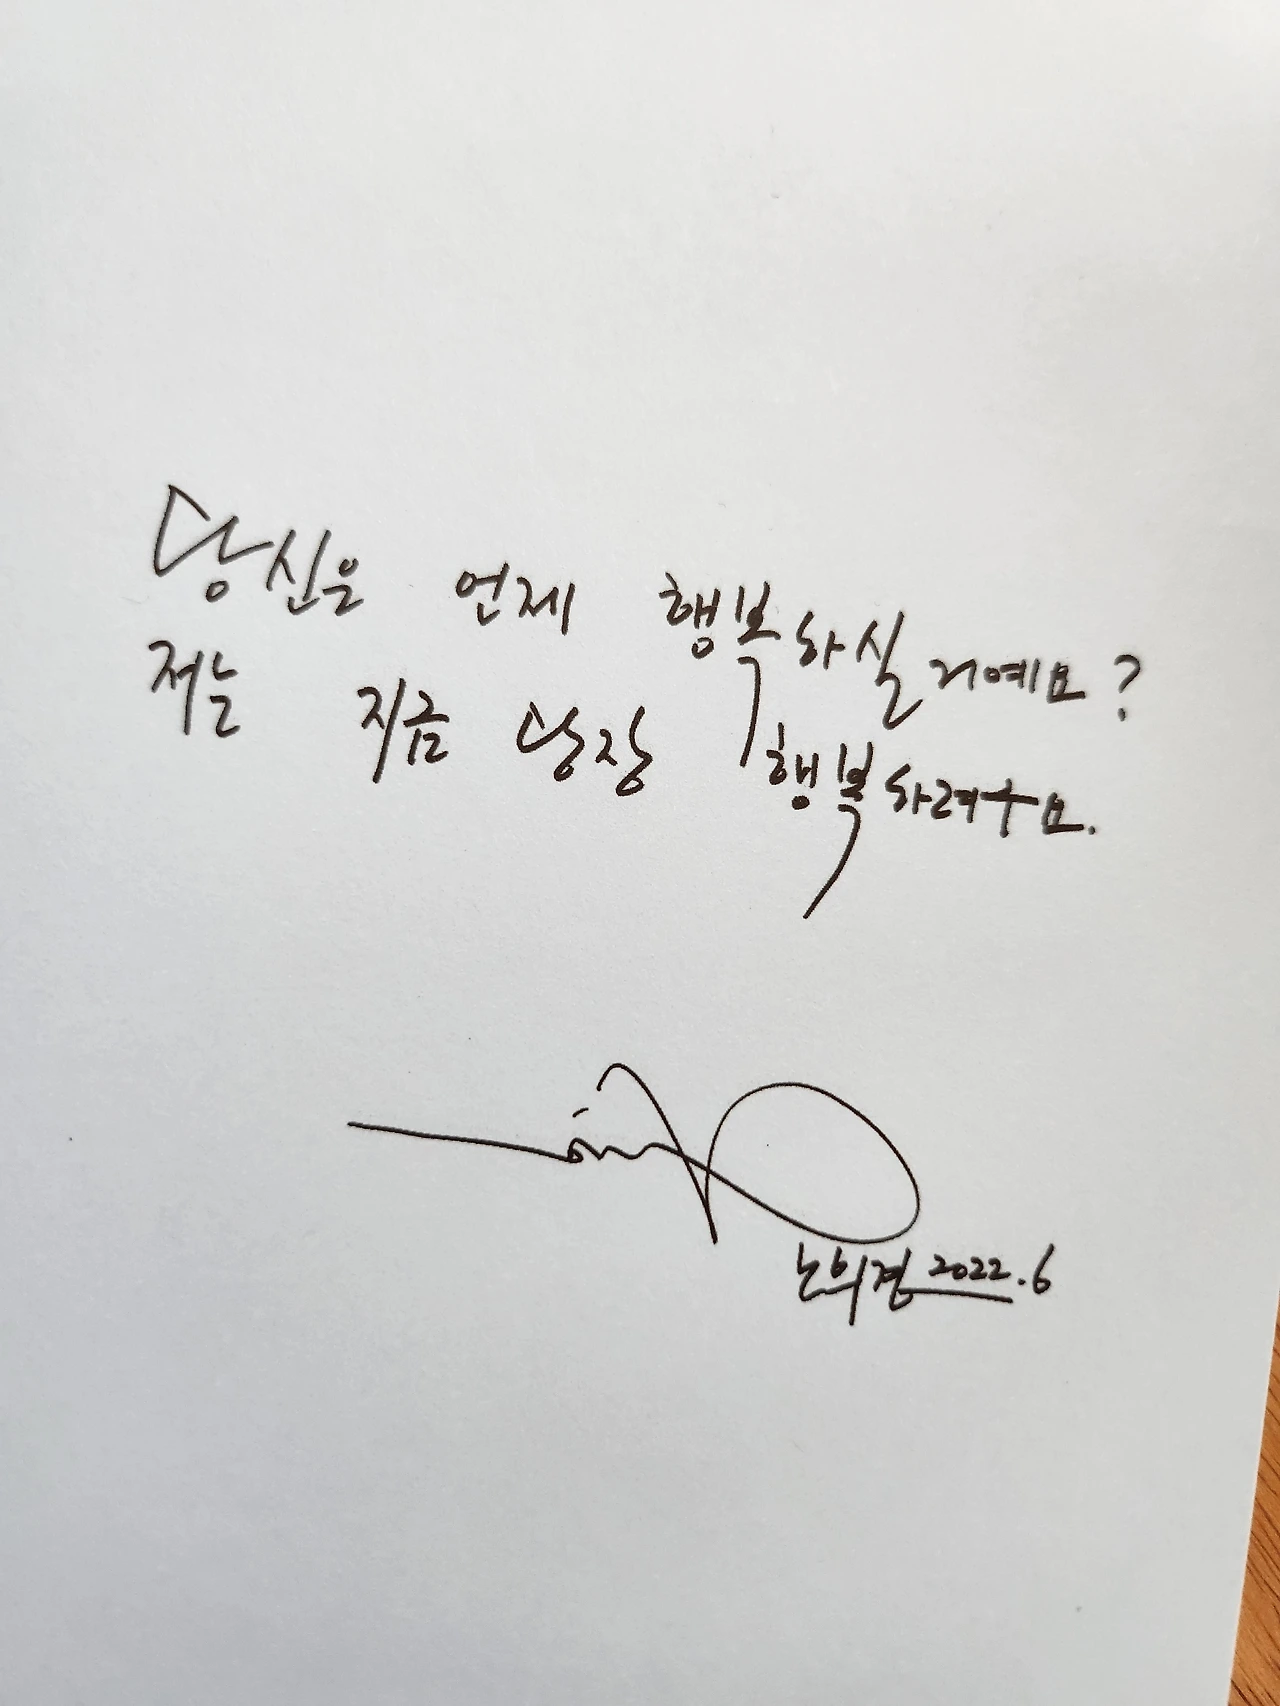 당신은 언제 행복하실 거예요?
저는 지금 당장 행복하려구요.
노희경 2022.6